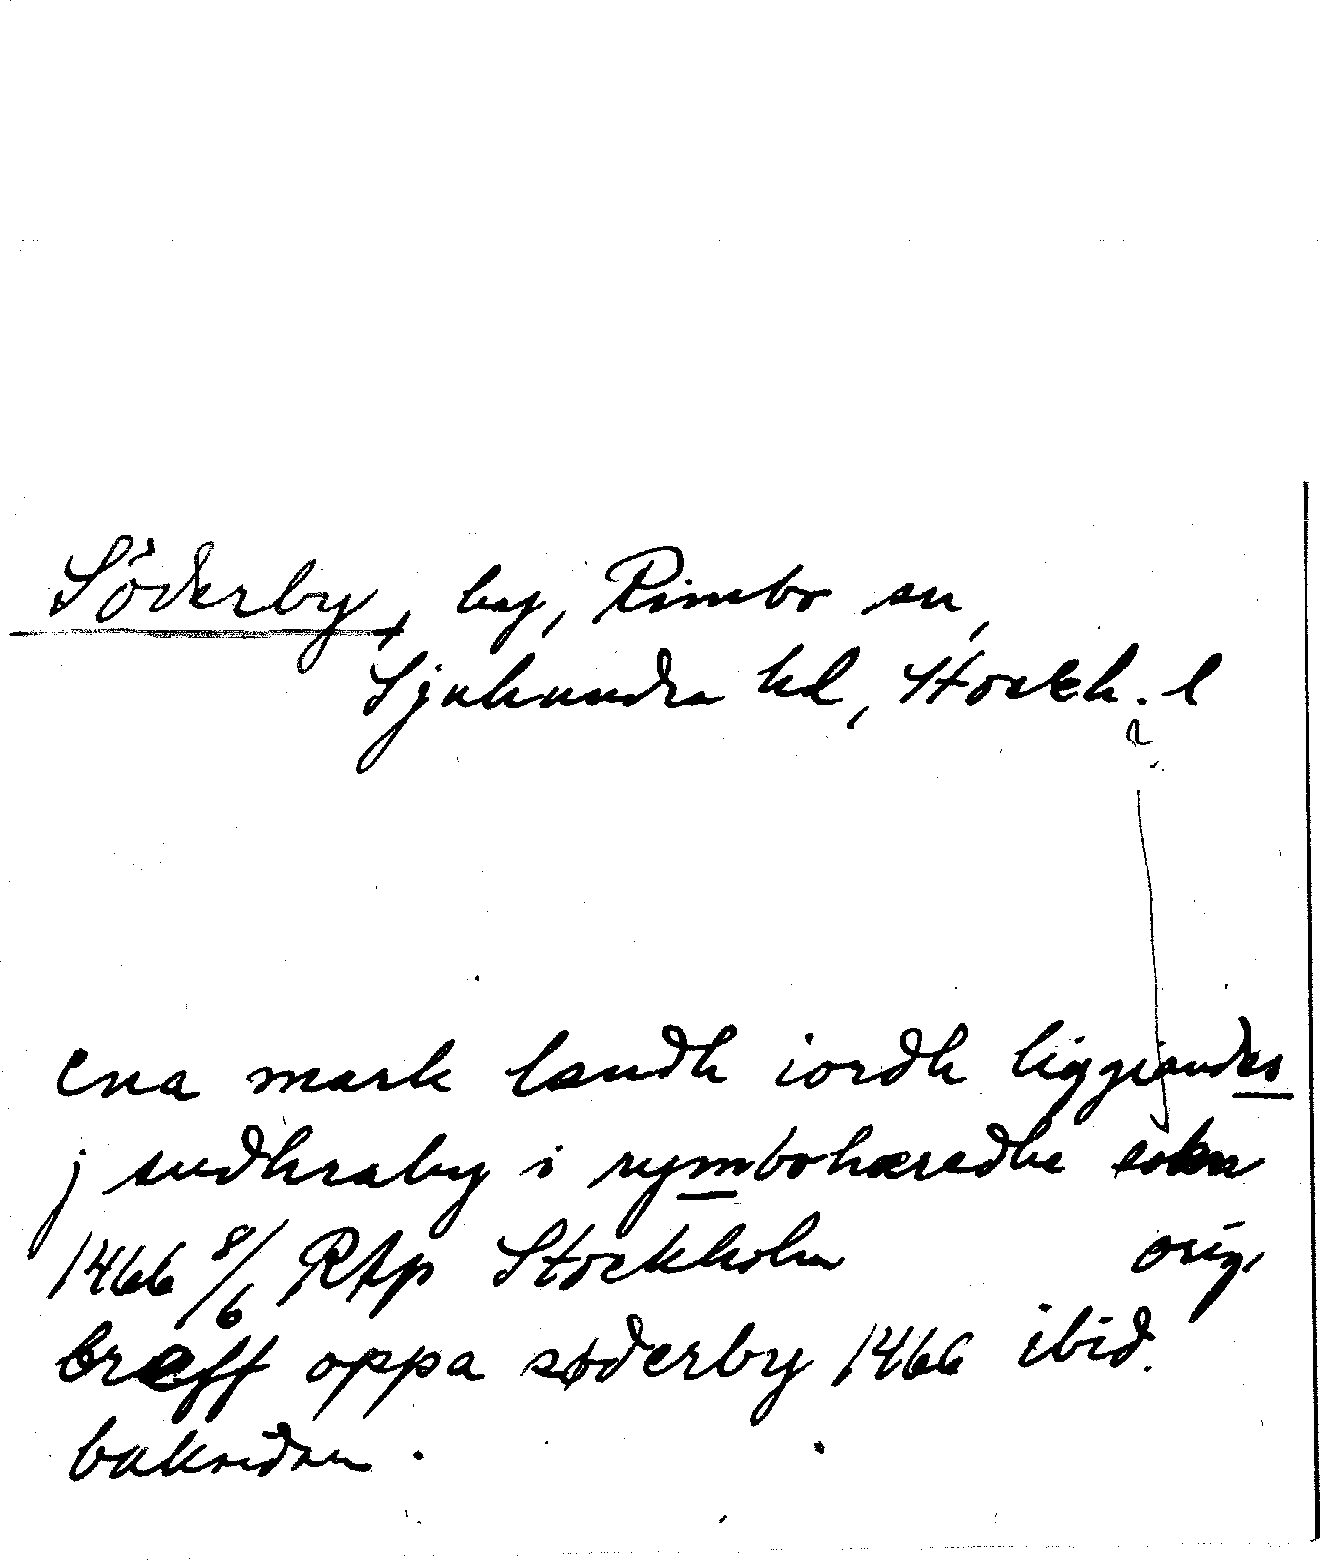 Söderby, by, Rimbo sn,
Sjuhundra hd, Stockh. l
ena mark landh iordh liggiandes
j sudhraby i rymbohæredhe sokn
1466 8/6 RAp Stockholm orig.
breff oppa søderby 1466 ibid.
baksidan.